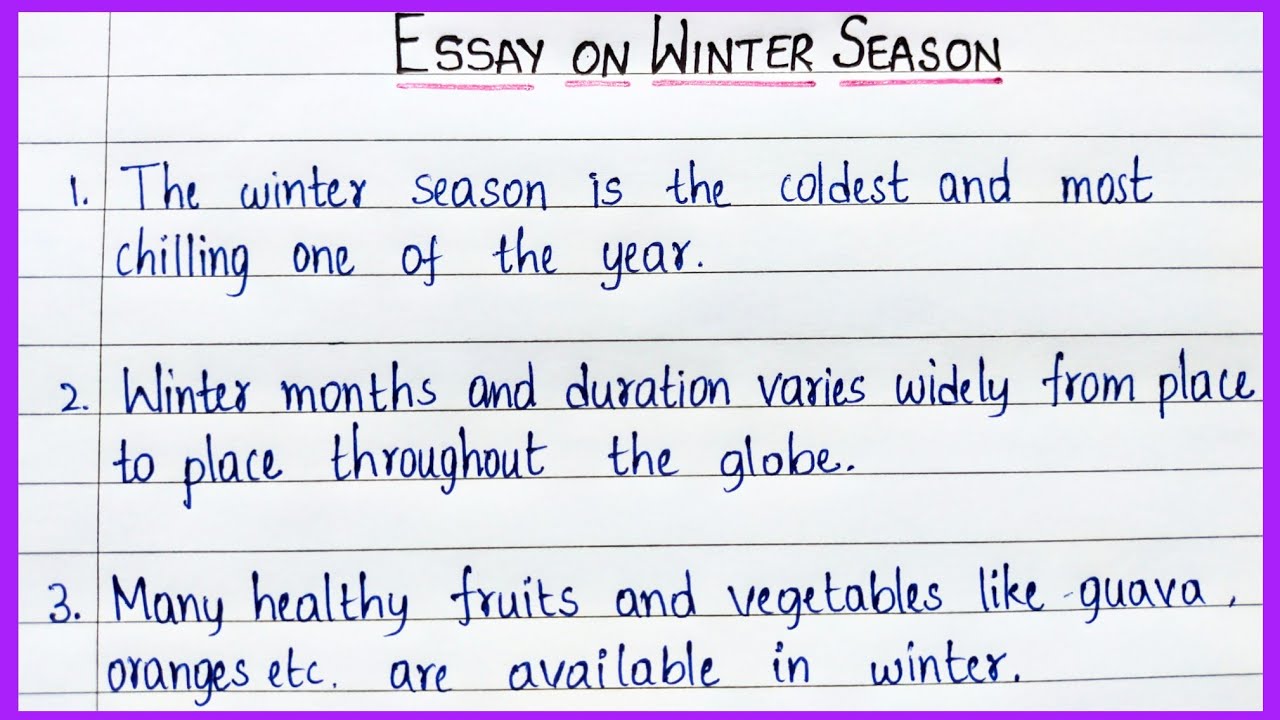 ESSAY ON WINTER SEASON
1. The winter season is the coldest and most
chilling one of the year.
2. Winter months and duration varies widely from place
to place throughout the globe.
3. Many healthy fruits and vegetables like guava,
oranges etc. are available in winter.